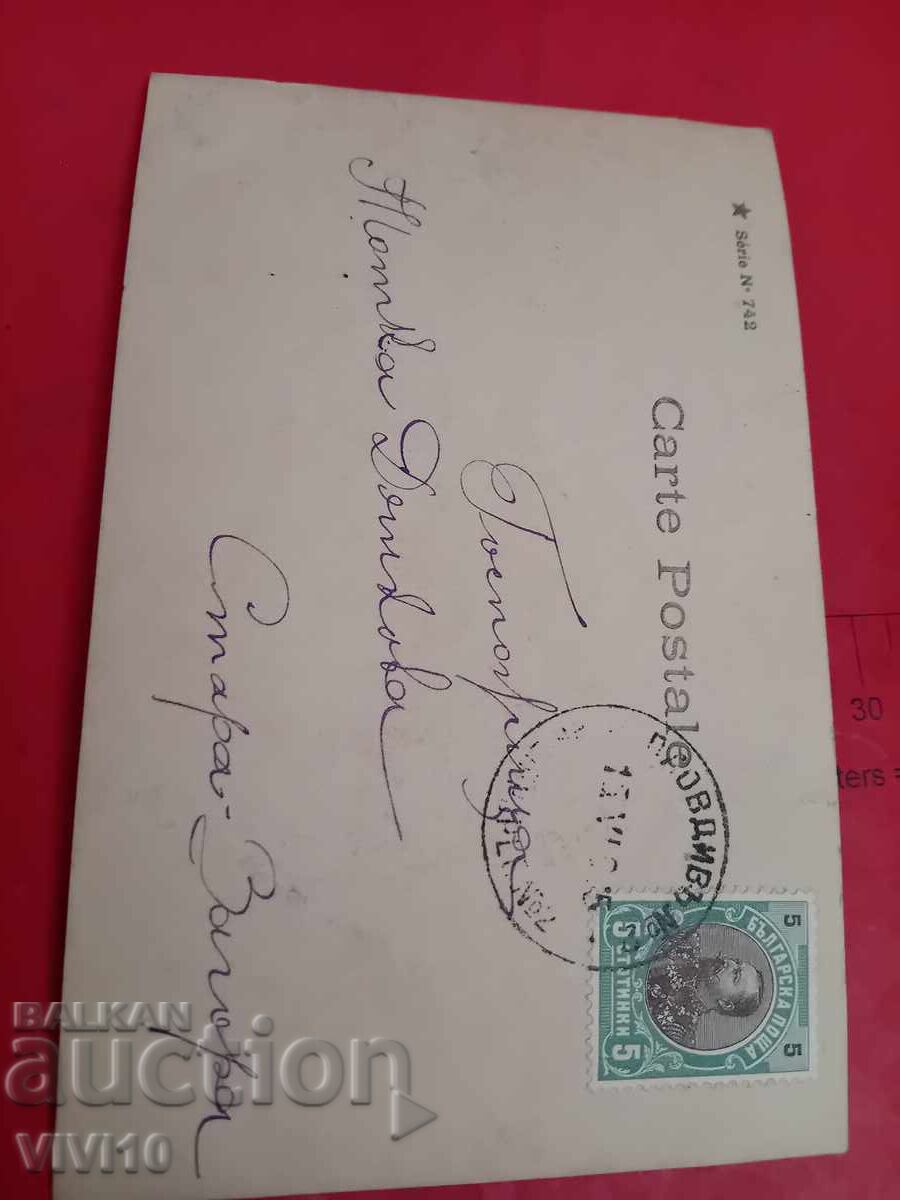 ★ Série Nº 742
Carte Postale
ПЛОВДИВЪ №
Госпожица
Дошкова
Стара-Загора
БЪЛГАРСКА ПОЩА
5 5
5 СТОТИНКИ 5
30
ters =
BALKAN
auction
VIVI10